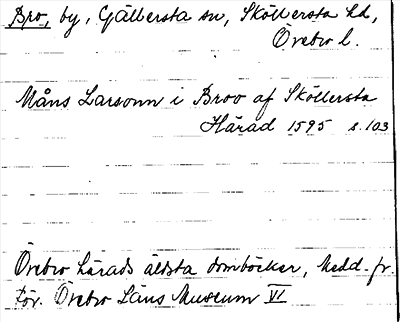 Bro, by, Gällersta sn, Sköllersta hd,
Örebro l.
Måns Larsonn i Broo af Sköllersta
Härad 1595 s. 103
Örebro härads äldsta domböcker, Medd. fr.
För. Örebro Läns Museum VI